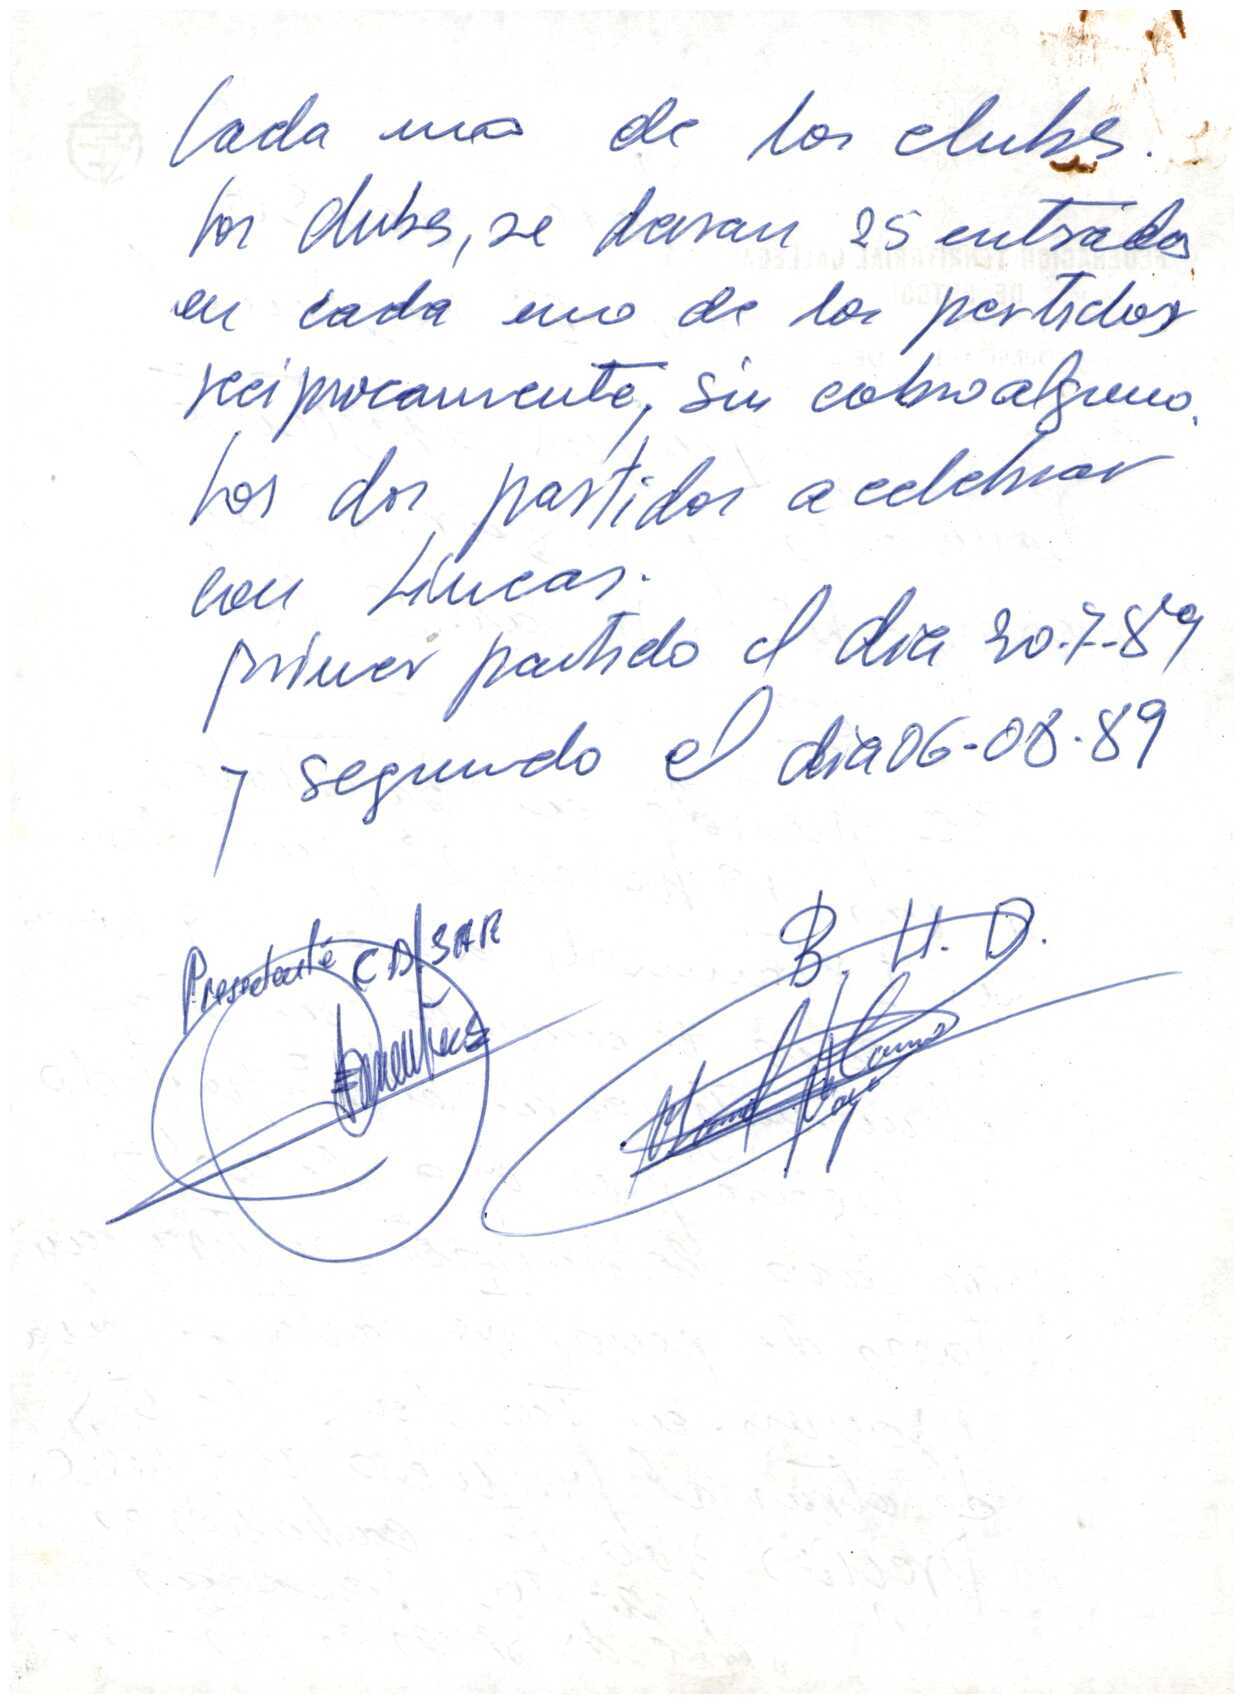 Cada uno de los clubs.
Los clubs, se daran 25 entradas
en cada uno de los partidos
reciprocamente, sin cobro alguno.
Los dos partidos a celebrar
con Lineas.
primer partido el dia 30-7-89
y segundo el dia 06-08-89
Presidente CD/SAR
B. H. D.